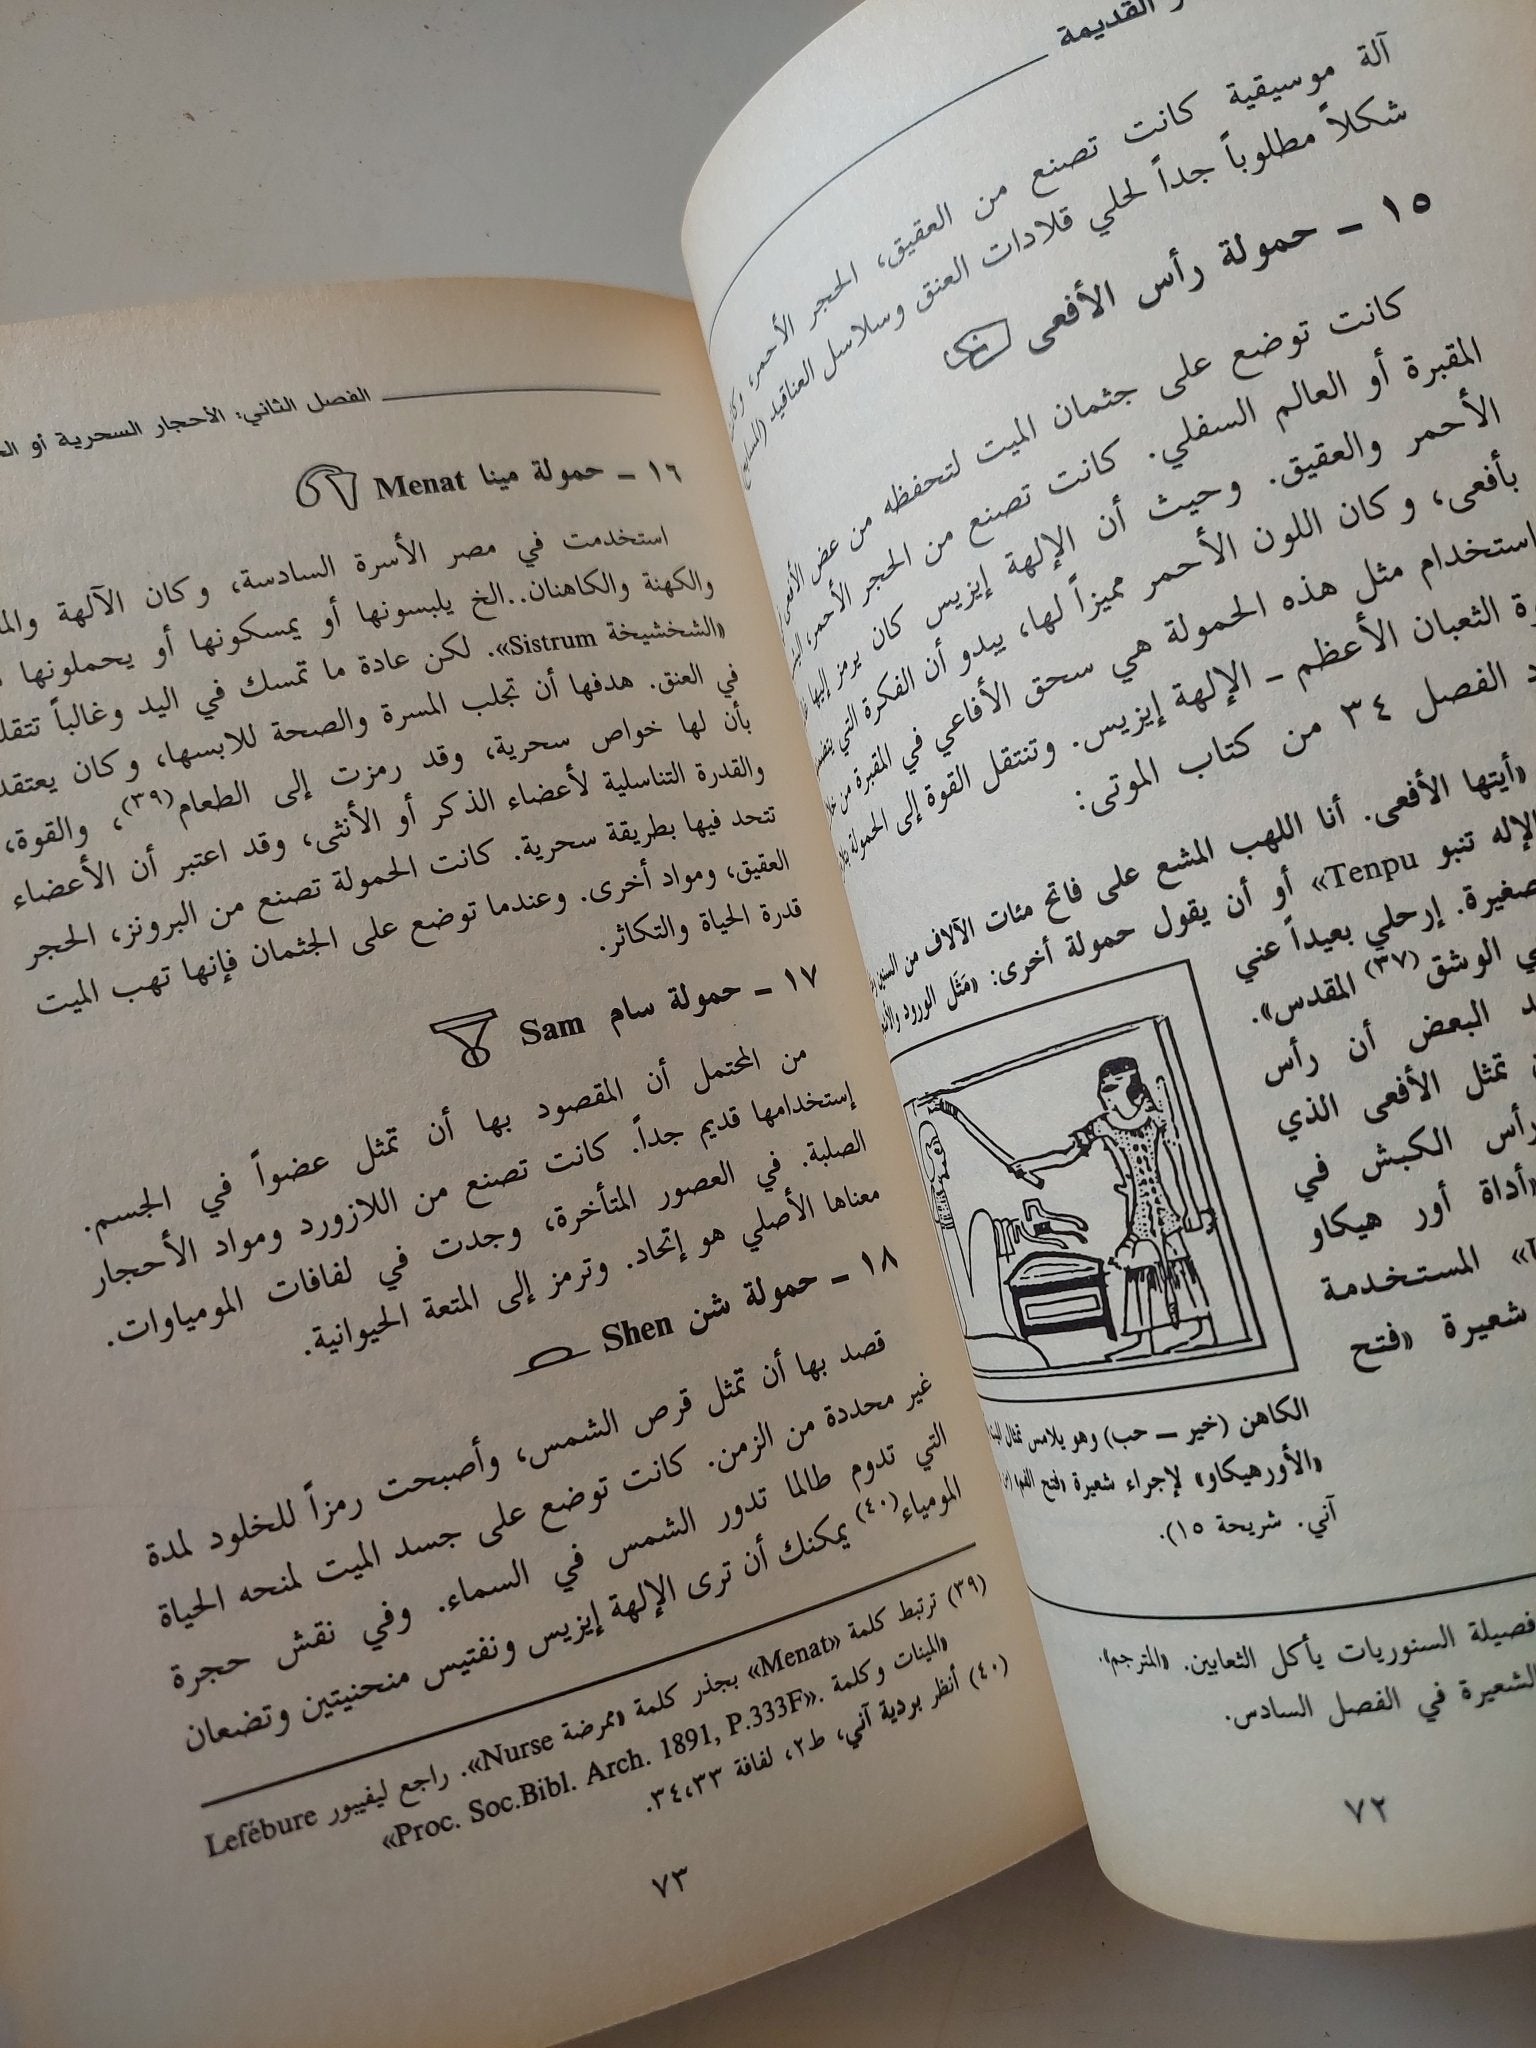 القديمة
آلة موسيقية كانت تصنع من العقيق، الحجر الأحمر،
شكلاً مطلوباً جداً لحلي قلادات العنق وسلاسل العناقيد
١٥ ـ حمولة رأس الأفعى
كانت توضع على جثمان الميت لتحفظه من عض الأفعى
المقبرة أو العالم السفلي. كانت تصنع من الحجر الأحمر،
الأحمر والعقيق. وحيث أن الإلهة إيزيس كان يرمز إليها
بأفعى، وكان اللون الأحمر مميزاً لها، يبدو أن الفكرة التي
استخدام مثل هذه الحمولة هي سحق الأفاعي في المقبرة من
الثعبان الأعظم ـ الإلهة إيزيس. وتنتقل القوة إلى الحمولة
الفصل ٣٤ من كتاب الموتى:
«أيتها الأفعى. أنا اللهب المشع على فاتح مئات الآلاف من السنين
الإله تنبو Tenpu» أو أن يقول حمولة أخرى: «مَثَل الورود
صغيرة. إرحلي بعيداً عني
الوشق (٣٧) المقدس».
البعض أن رأس
تمثل الأفعى الذي
رأس الكبش في
«أداة أور هيكاو
» المستخدمة
شعيرة «فتح
الكاهن (خير ـ حب) وهو يلامس تمثال
«الأورهيكاو» لإجراء شعيرة «فتح الفم»
آني. شريحة ١٥).
فصيلة السنوريات يأكل الثعابين. «المترجم».
الشعيرة في الفصل السادس.
٧٢
الفصل الثاني: الأحجار السحرية أو
١٦ ـ حمولة مينا Menat
استخدمت في مصر الأسرة السادسة، وكان الآلهة
والكهنة والكاهنان..الخ يلبسونها أو يمسكونها أو يحملونها
«الشخشيخة Sistrum». لكن عادة ما تمسك في اليد وغالباً
في العنق. هدفها أن تجلب المسرة والصحة للابسها، وكان يعتقد
بأن لها خواص سحرية، وقد رمزت إلى الطعام(٣٩)، والقوة،
والقدرة التناسلية لأعضاء الذكر أو الأنثى، وقد اعتبر أن الأعضاء
تتحد فيها بطريقة سحرية. كانت الحمولة تصنع من البرونز، الحجر
العقيق، ومواد أخرى. وعندما توضع على الجثمان فإنها تهب الميت
قدرة الحياة والتكاثر.
١٧ ـ حمولة سام Sam
من المحتمل أن المقصود بها أن تمثل عضواً في الجسم.
إستخدامها قديم جداً. كانت تصنع من اللازورد ومواد الأحجار
الصلبة. في العصور المتأخرة، وجدت في لفافات المومياوات.
معناها الأصلي هو إتحاد. وترمز إلى المتعة الحيوانية.
١٨ ـ حمولة شن Shen
قصد بها أن تمثل قرص الشمس، وأصبحت رمزاً للخلود لمدة
غير محددة من الزمن. كانت توضع على جسد الميت لمنحه الحياة
التي تدوم طالما تدور الشمس في السماء. وفي نقش حجرة
المومياء(٤٠) يمكنك أن ترى الإلهة إيزيس ونفتيس منحنيتين وتضعان
(٣٩) ترتبط كلمة «Menat» بجذر كلمة «ممرضة Nurse». راجع ليفيبور Lefébure
«المينات وكلمة .«Proc. Soc.Bibl. Arch. 1891, P.333F»
(٤٠) أنظر بردية آني، ط٢، لفافة ٣٤،٣٣.
٧٣